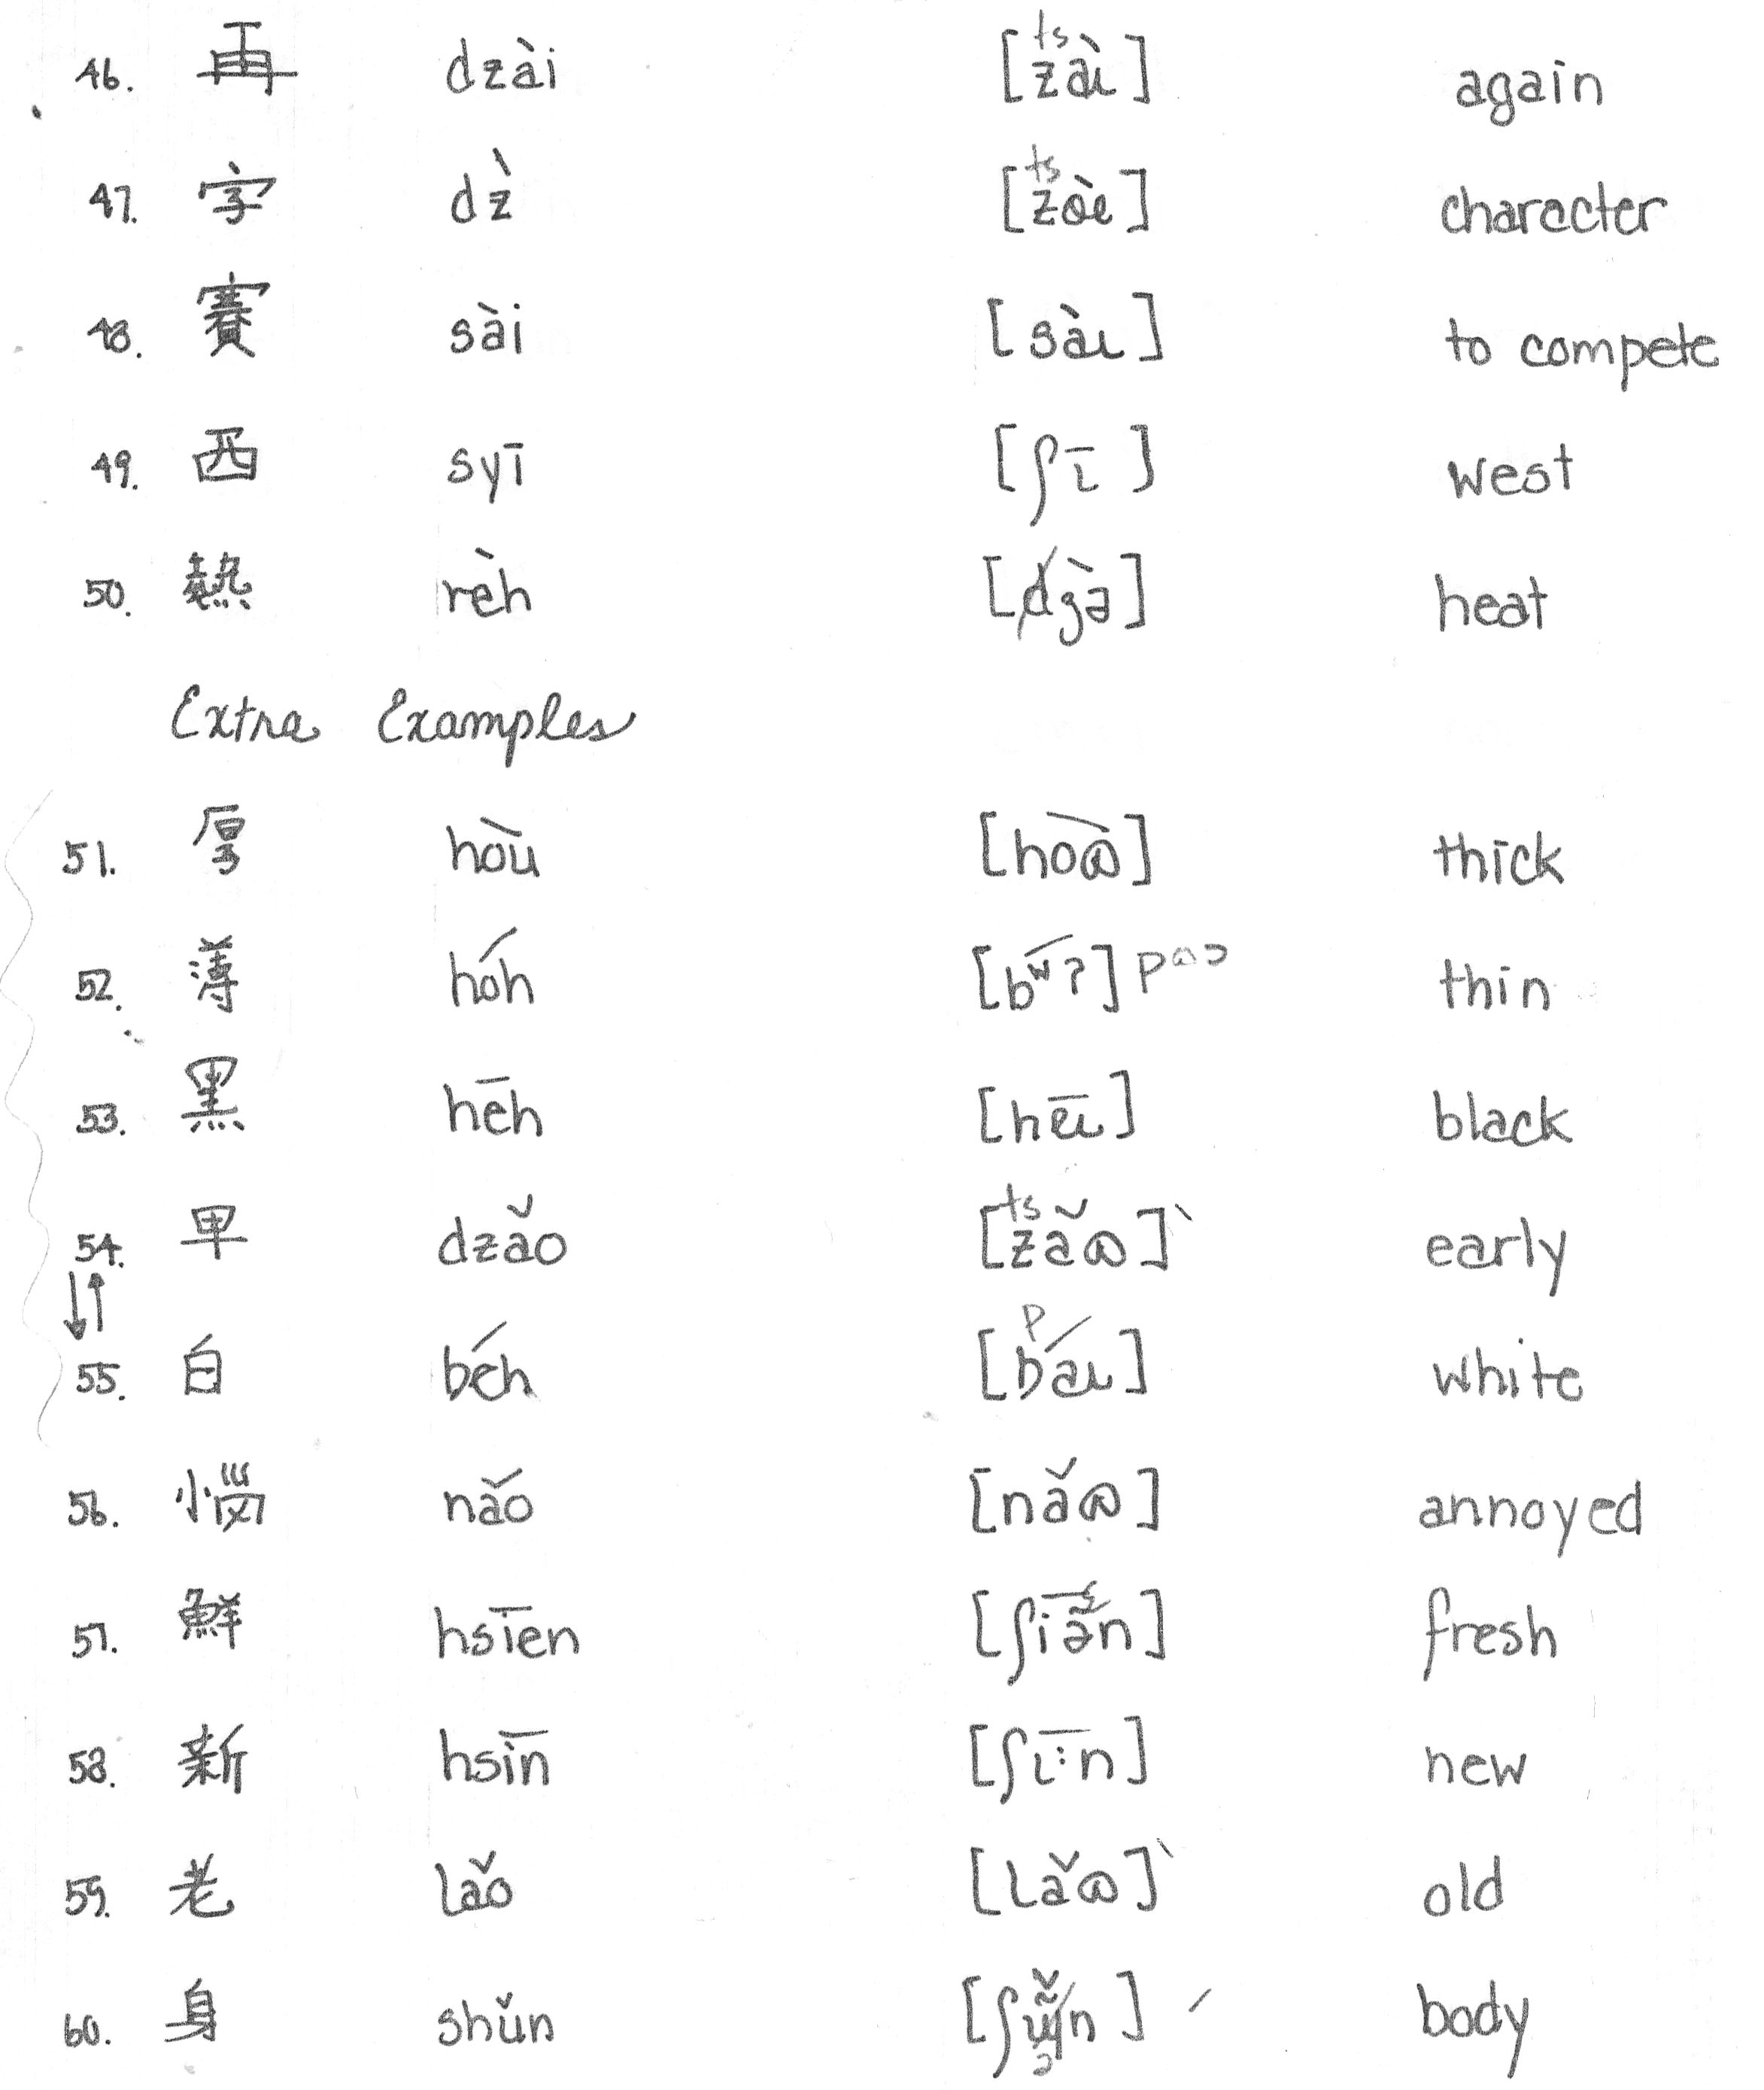 46. 再 dzài [zàɩ] ts again
47. 字 dz̀ [zòe] ts character
48. 賽 sài [sàɩ] to compete
49. 西 syī [ʃɩ̄] west
50. 熱 rèh [dʒə̀] heat
Extra Examples
51. 厚 hòu [hoɷ̀] thick
52. 薄 hóh [bʷ́?] pɷɔ thin
53. 黑 hēh [hēɩ] black
54. 早 dzǎo [zǎɷ] ts early
↓↑
55. 白 béh [báɩ] p white
56. 惱 nǎo [nǎɷ] annoyed
57. 鮮 hsīen fresh
58. 新 hsīn [ʃɩ̄:n] new
59. 老 lǎo [lǎɷ]` old
60. 身 shǔn body